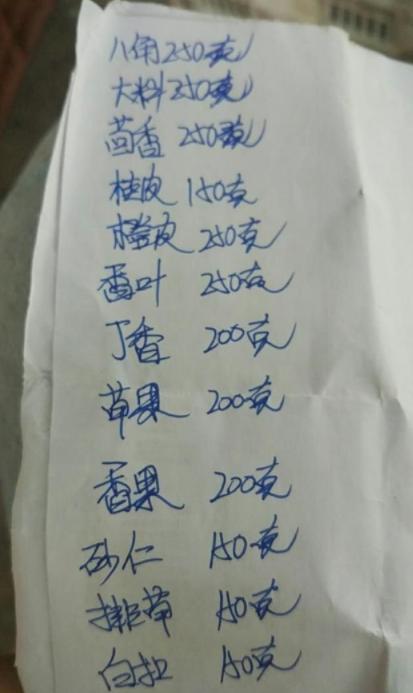 八角250克
大料250克
茴香 250克
桂皮 150克
橙皮 250克
香叶 250克
丁香 200克
草果 200克
香果 200克
砂仁 150克
排草 150克
白扣 150克